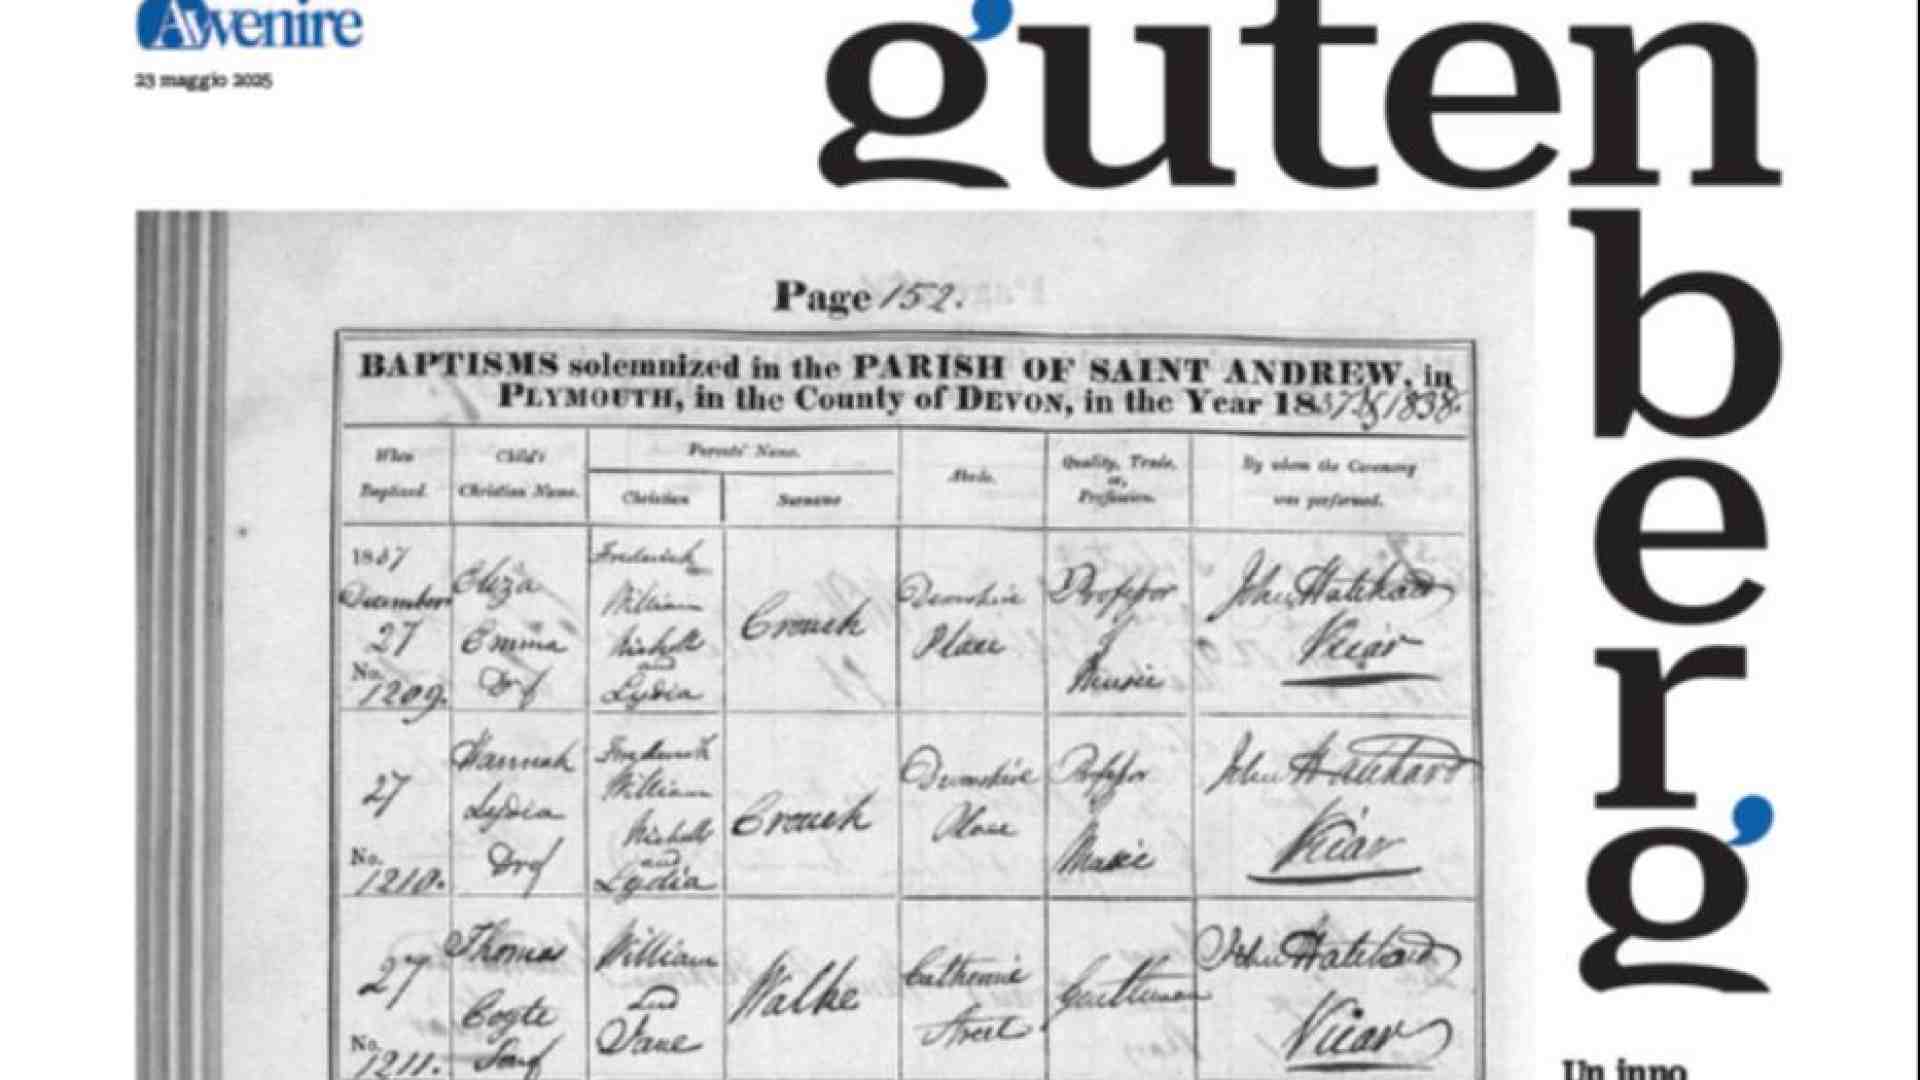 Avvenire
23 maggio 2025
gutenberg
Page 152.
BAPTISMS solemnized in the PARISH OF SAINT ANDREW, in
PLYMOUTH, in the County of DEVON, in the Year 1837 & 1838.
When Baptized.
Child's Christian Name.
Parents' Name.
Christian
Surname
Abode.
Quality, Trade, or, Profession.
By whom the Ceremony was performed.
1837
December
27
No. 1209.
Eliza
Emma
Frederick
William
Nicholls
and
Lydia
Crouch
Devonshire
Place
Professor
of
Music
John Hatchard
Vicar
27
No. 1210.
Hannah
Lydia
Frederick
William
Nicholls
and
Lydia
Crouch
Devonshire
Place
Professor
of
Music
John Hatchard
Vicar
27
No. 1211.
Thomas
William
and
Jane
Walke
Catherine
Street
Gentleman
John Hatchard
Vicar
Un inno